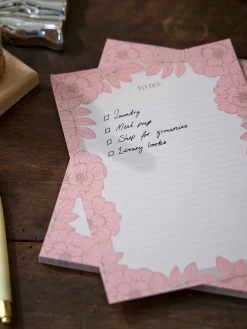 TO DO:
☐ Laundry
☐ Meal prep
☐ Shop for groceries
☐ Library books